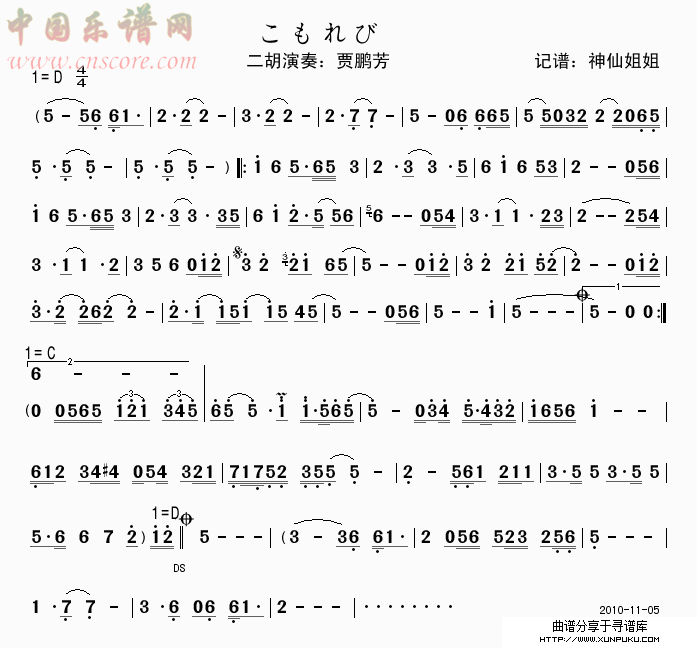 中国乐谱网
www.cnscore.com
こもれび
二胡演奏：贾鹏芳 记谱：神仙姐姐
1=D 4/4
( 5 - 56 61· | 2·2 2 - | 3·2 2 - | 2·7 7 - | 5 - 06 665 | 5 5032 2 2065 |
5·5 5 - | 5·5 5 - ) ‖: 1 6 5·65 3 | 2·3 3·5 | 6 1 6 53 | 2 - - 056 |
1 6 5·65 3 | 2·3 3·35 | 6 1 2·5 56 | 5 6 - - 054 | 3·1 1·23 | 2 - - 254 |
3·1 1·2 | 3 5 6 012 | 𝄋 3 2 3 21 65 | 5 - - 012 | 3 2 21 52 | 2 - - 012 |
1
3·2 262 2 - | 2·1 151 15 45 | 5 - - 056 | 5 - - 1 | 5 - - - | 5 - 0 0 :‖
1=C
2
6 - - -
3 3
( 0 0565 121 345 | 65 5·1 1·565 | 5 - 034 5·432 | 1656 1 - - |
612 34#4 054 321 | 71752 355 5 - | 2 - 561 211 | 3·5 5 3·5 5 |
1=D
5·6 6 7 2 ) 12 ‖ 5 - - - | ( 3 - 36 61· | 2 056 523 256 | 5 - - - |
DS
1·7 7 - | 3·6 06 61· | 2 - - - | ········
2010-11-05
曲谱分享于寻谱库
HTTP://WWW.XUNPUKU.COM